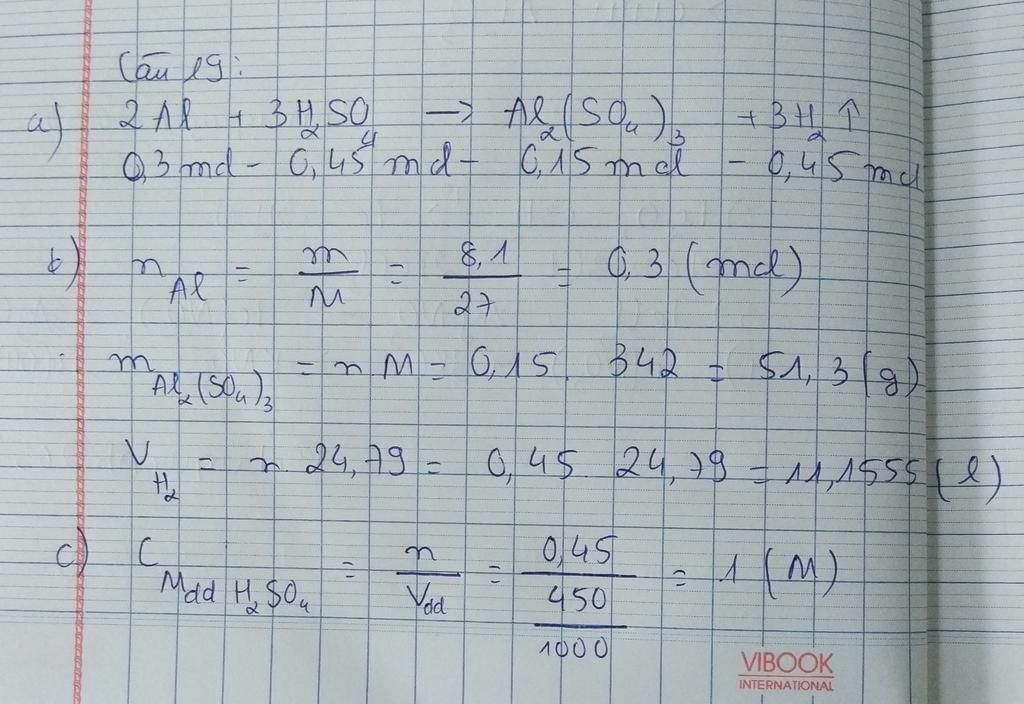 Câu 19:
a) 2Al + 3H₂SO₄ → Al₂(SO₄)₃ + 3H₂ ↑
0,3 mol - 0,45 mol - 0,15 mol - 0,45 mol
b) n Al = m/M = 8,1/27 = 0,3 (mol)
m Al₂(SO₄)₃ = n M = 0,15. 342 = 51,3 (g)
V H₂ = n 24,79 = 0,45 24,79 = 11,1555 (l)
c) C Mdd H₂SO₄ = n/Vdd = 0,45/(450/1000) = 1 (M)
VIBOOK
INTERNATIONAL